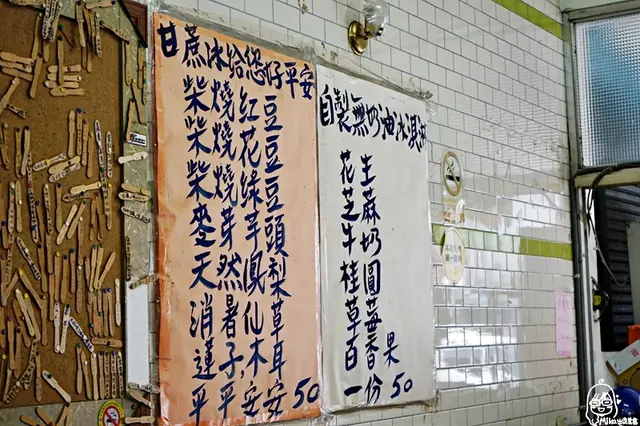 甘蔗冰給您好平安
柴燒紅豆
柴燒花豆
柴燒綠豆
麥芽芋頭
天然鳳梨
消暑仙草
蓮子,木耳
平平安安 50
自製無奶油冰淇淋
花生
芝麻
牛奶
桂圓
草莓
百香果
一份 50